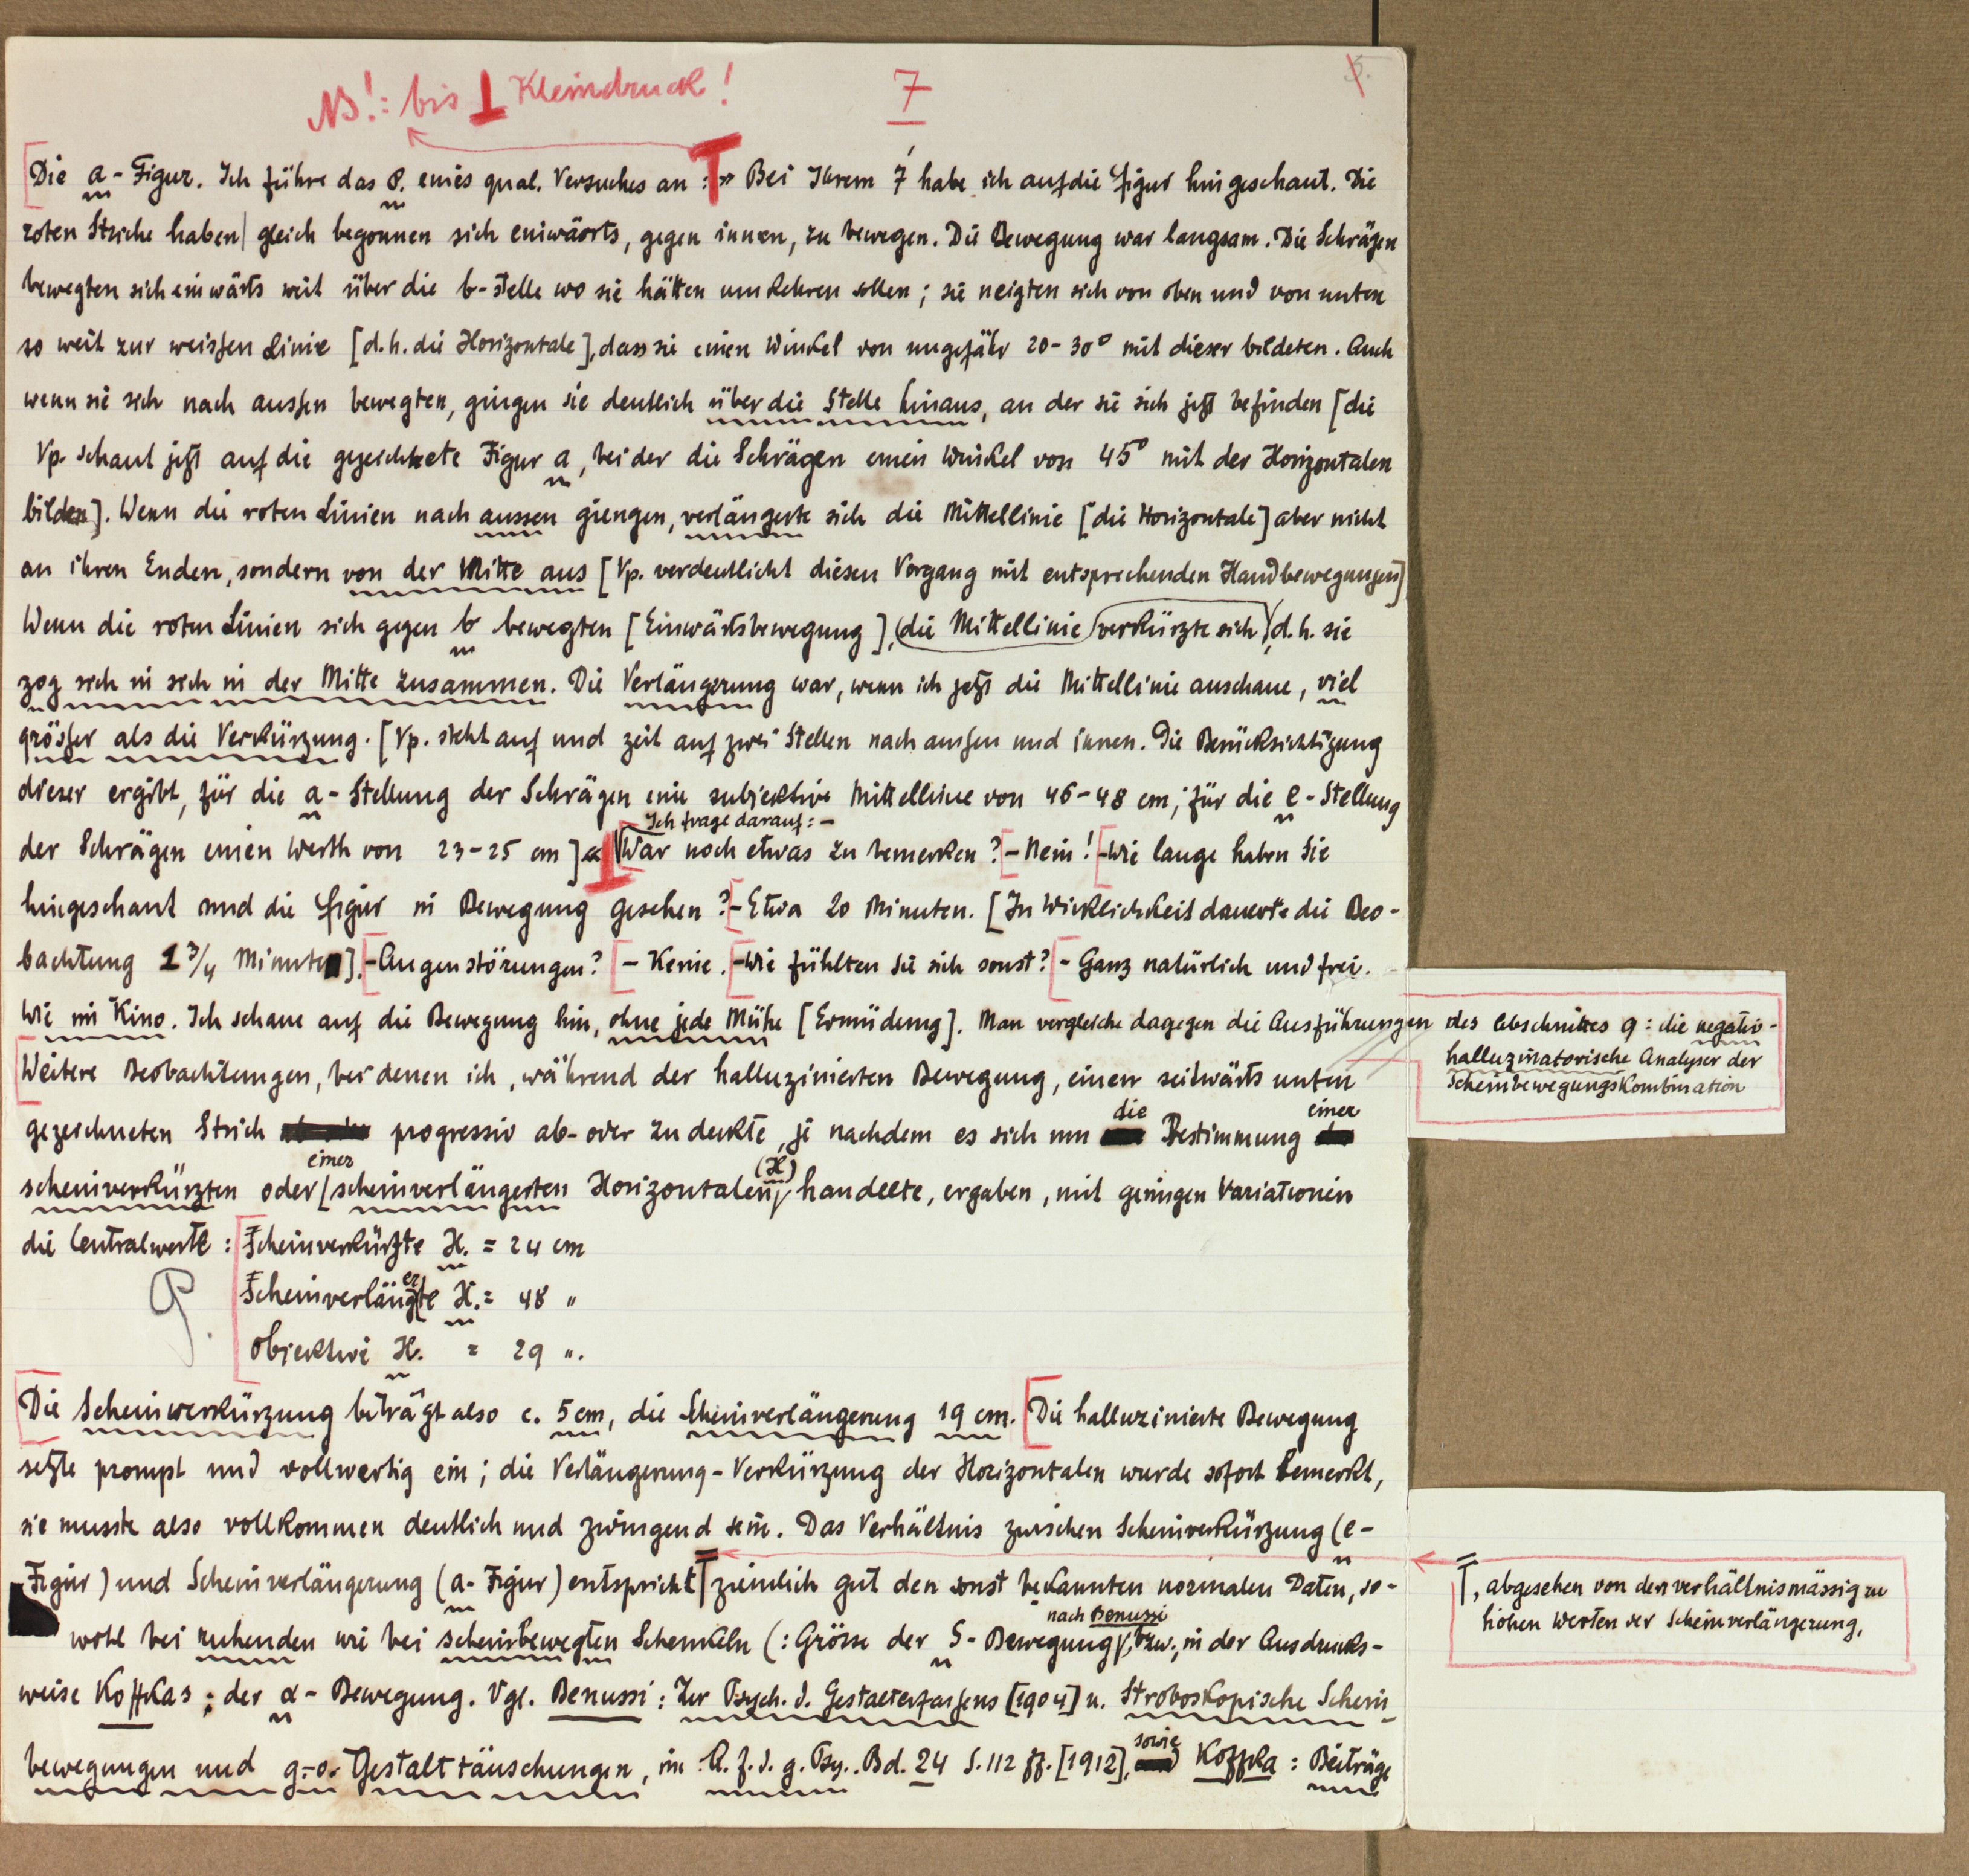 NB!: bis ⊥ Kleindruck!
7
5.
Die a-Figur. Ich führe das P. eines qual. Versuches an: » Bei Ihrem 7 habe ich auf die Figur hingeschaut. Die
roten Striche haben gleich begonnen sich einwärts, gegen innen, zu bewegen. Die Bewegung war langsam. Die Schrägen
bewegten sich einwärts weit über die b-Stelle wo sie hätten umkehren sollen; sie neigten sich von oben und von unten
so weit zur weissen Linie [d.h. die Horizontale], dass sie einen Winkel von ungefähr 20-30° mit dieser bildeten. Auch
wenn sie sich nach aussen bewegten, gingen sie deutlich über die Stelle hinaus, an der sie sich jetzt befinden [die
Vp. schaut jetzt auf die gezeichnete Figur a, bei der die Schrägen einen Winkel von 45° mit der Horizontalen
bilden]. Wenn die roten Linien nach aussen giengen, verlängerte sich die Mittellinie [die Horizontale] aber nicht
an ihren Enden, sondern von der Mitte aus [Vp. verdeutlicht diesen Vorgang mit entsprechenden Handbewegungen]
Wenn die roten Linien sich gegen b bewegten [Einwärtsbewegung], die Mittellinie verkürzte sich, d.h. sie
zog sich in sich in der Mitte zusammen. Die Verlängerung war, wenn ich jetzt die Mittellinie anschaue, viel
grösser als die Verkürzung. [Vp. steht auf und zeit auf zwei Stellen nach aussen und innen. Die Berücksichtigung
dieser ergibt, für die a-Stellung der Schrägen eine subjektive Mittellinie von 46-48 cm; für die e-Stellung
Ich frage darauf: -
der Schrägen einen Werth von 23-25 cm]« War noch etwas zu bemerken? - Nein! - Wie lange haben Sie
hingeschaut und die Figur in Bewegung gesehen? - Etwa 20 Minuten. [In Wirklichkeit dauerte die Beo-
bachtung 1 3/4 Minuten]. - Augenstörungen? - Keine. - Wie fühlten Sie sich sonst? - Ganz natürlich und frei.
Wie im Kino. Ich schaue auf die Bewegung hin, ohne jede Mühe [Ermüdung]. Man vergleiche dagegen die Ausführungen des Abschnittes 9: die negativ-
halluzinatorische Analyse der
Scheinbewegungskombination
Weitere Beobachtungen, bei denen ich, während der halluzinierten Bewegung, einen seitwärts unten
gezeichneten Strich progressiv ab- oder zudeckte, je nachdem es sich um die Bestimmung einer
scheinverkürzten oder einer scheinverlängerten Horizontalen (H) handelte, ergaben, mit geringen Variationen
die Centralwerte: Scheinverkürzte H. = 24 cm
Scheinverlängerte H. = 48 "
Objektive H. = 29 ".
Die Scheinverkürzung beträgt also c. 5 cm, die Scheinverlängerung 19 cm. Die halluzinierte Bewegung
setzte prompt und vollwertig ein; die Verlängerung-Verkürzung der Horizontalen wurde sofort bemerkt,
sie musste also vollkommen deutlich und zwingend sein. Das Verhältnis zwischen Scheinverkürzung (e-
Figur) und Scheinverlängerung (a-Figur) entspricht ziemlich gut den sonst bekannten normalen Daten, so-
, abgesehen von den verhältnismässig zu
hohen Werten der Scheinverlängerung,
wohl bei ruhenden wie bei scheinbewegten Schenkeln (: Grösse der S-Bewegung nach Benussi, bzw., in der Ausdrucks-
weise Koffkas; der α-Bewegung. Vgl. Benussi: Zur Psych. d. Gestalterfassens [1904] u. Stroboskopische Schein-
bewegungen und g.-o. Gestalttäuschungen, im A. f. d. g. Psy. Bd. 24 S. 112 ff. [1912], sowie Koffka: Beiträge